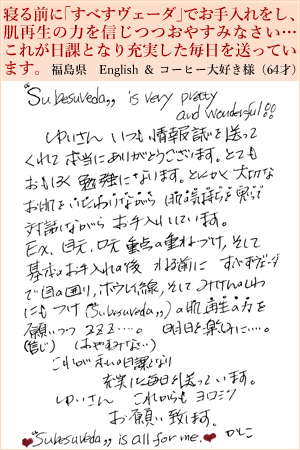 寝る前に「すべすヴェーダ」でお手入れをし、
肌再生の力を信じつつおやすみなさい…
これが日課となり充実した毎日を送ってい
ます。福島県 English & コーヒー大好き様（64才）
"Subesuveda„ is very pretty
and wonderful!!
ゆいさん いつも情報誌を送って
くれて本当にありがとうございます。とても
おもしろく勉強になります。とにかく大切な
お肌をいたわりながら 肌に気持ちを
対話しながら お手入れしています。
Ex、目元、口元 重点の重ねづけ、そして
基本のお手入れの後 ねる前に すべすヴェーダ
で目の回り、ホウレイ線、そして みけんのしわ
にもつけ (Subesuveda„) の肌再生の力を
願いつつ ZZZ…。 明日を楽しみに…。
(信じ) (おやすみなさい)
これが私の日課となり
充実に毎日を送っています。
ゆいさん これからも ヨロシク
お願い致します。
"Subesuveda„ is all for me.